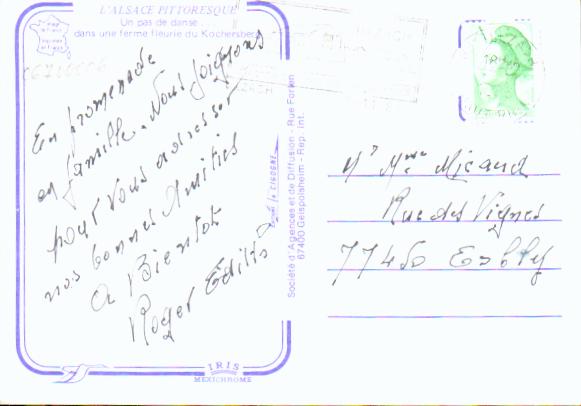 L'ALSACE PITTORESQUE
Un pas de danse
dans une ferme fleurie du Kochersberg
En promenade
en famille. Nous joignons
pour vous adresser
nos bonnes Amitiés
a Bientôt
Roger Edith
Société d'Agences et de Diffusion - Rue Forlen
67400 Geispolsheim - Rep. Int.
IRIS
MEXICHROME
Mr Mme Micaud
Rue des Vignes
77450 Esbly